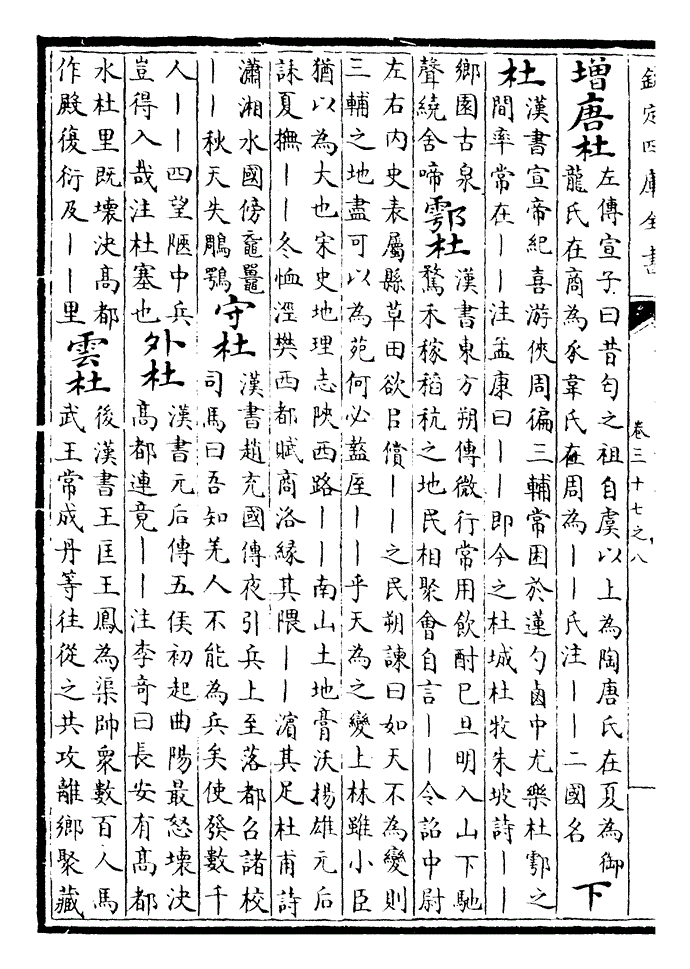 欽定四庫全書
卷三十七之八
增唐杜
左傳宣子曰昔匄之祖自虞以上為陶唐氏在夏為御
龍氏在商為豕韋氏在周為丨丨氏注丨丨二國名
下
杜
漢書宣帝紀喜游俠周徧三輔常困於蓮勺鹵中尤樂杜鄠之
間率常在丨丨注孟康曰丨丨即今之杜城杜牧朱坡詩丨丨
鄉園古泉
聲繞舍啼
鄠杜
漢書東方朔傳微行常用飲酎已旦明入山下馳
騖禾稼稻秔之地民相聚會自言丨丨令詔中尉
左右内史表屬縣草田欲㠯償丨丨之民朔諫曰如天不為變則
三輔之地盡可以為苑何必盩厔丨丨乎天為之變上林雖小臣
猶以為大也宋史地理志陝西路丨丨南山土地膏沃揚雄元后
誄夏撫丨丨冬恤涇樊西都賦商洛緣其隈丨丨濱其足杜甫詩
瀟湘水國傍黿鼉
丨丨秋天失鵰鶚
守杜
漢書趙充國傳夜引兵上至落都召諸校
司馬曰吾知羌人不能為兵矣使發數千
人丨丨四望陿中兵
豈得入哉注杜塞也
外杜
漢書元后傳五侯初起曲陽最怒壞決
高都連竟丨丨注李奇曰長安有高都
水杜里既壞決高都
作殿復衍及丨丨里
雲杜
後漢書王匡王鳳為渠帥衆數百人馬
武王常成丹等往從之共攻離鄉聚藏